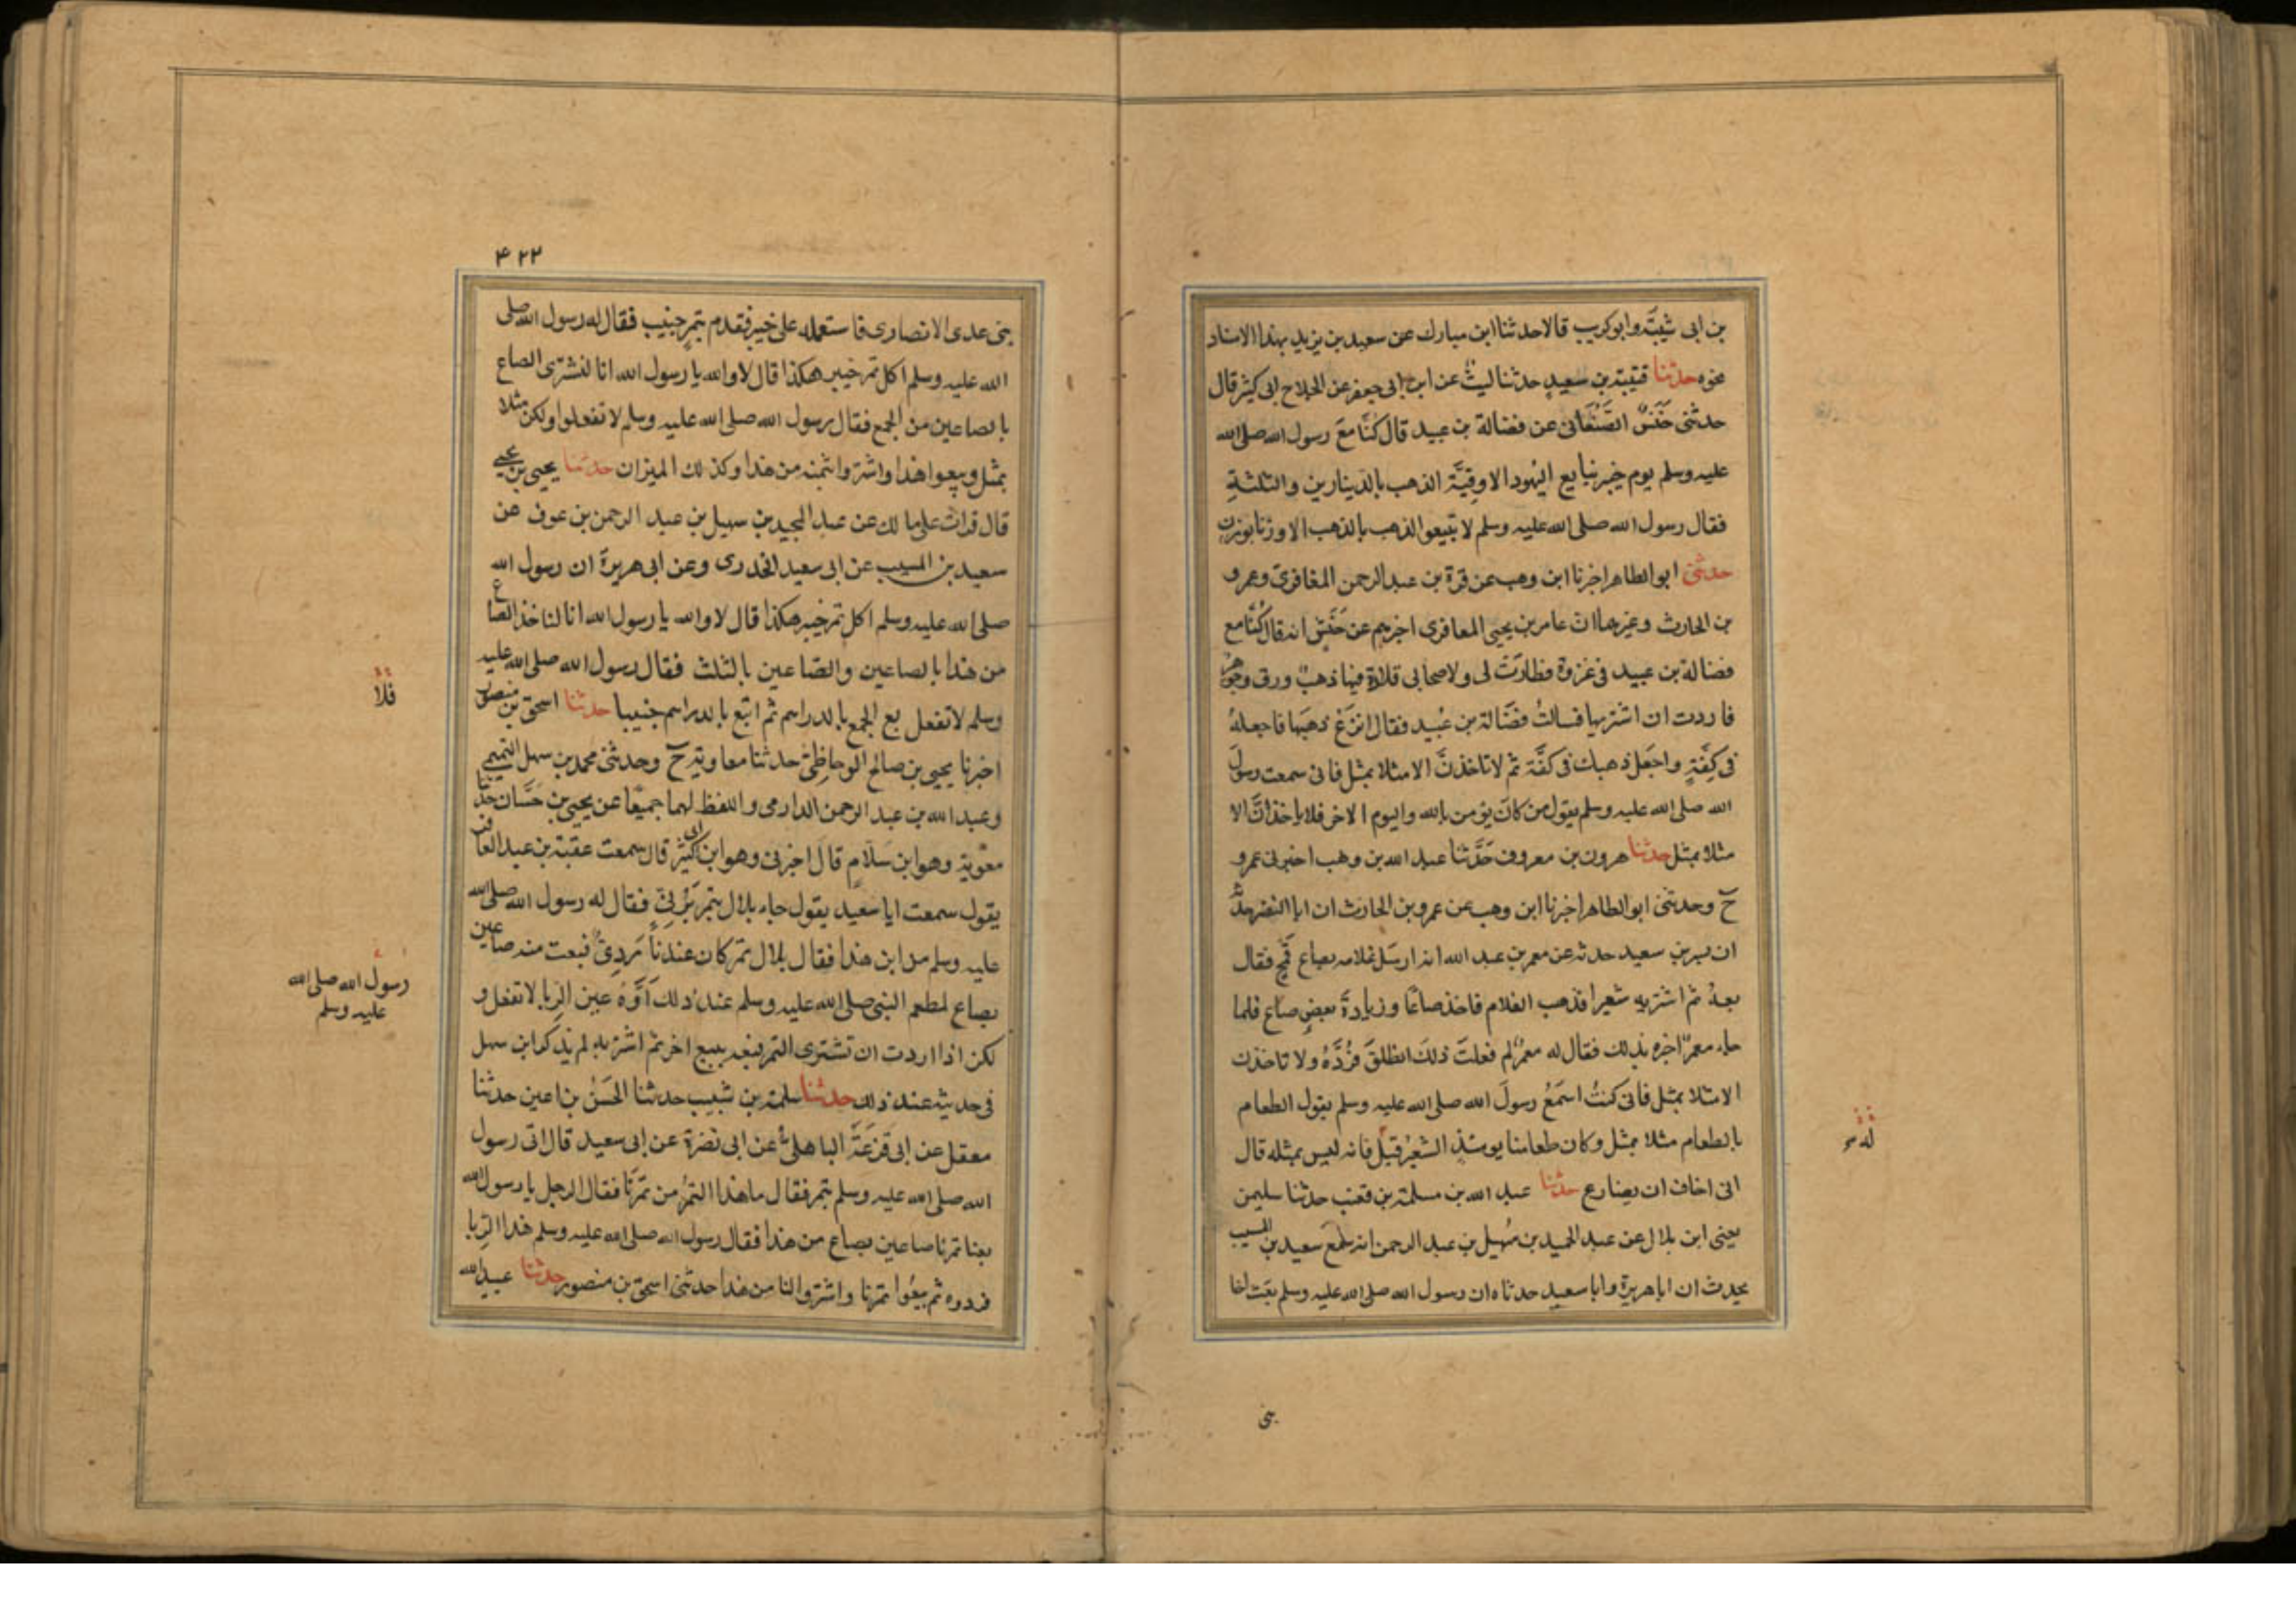 بن ابى شيبَة وابوكريب قالا حدثنا ابن مبارك عن سعيد بن يزيد بهذا الاسناد
نحوه حدثنا قتيبة بن سعيدٍ حدثنا ليثٌ عن ابن ابى جعفر عن الجلاح ابى كثير قال
حدثنى حَنَشٌ الصَّنْعَانى عن فضالة بن عبيد قال كُنَّا معَ رسول الله صلى الله
عليه وسلم يوم خيبر نبايع اليهود الاوقِيَّة الذهب بالدينارين والثلثةِ
فقال رسول الله صلى الله عليه وسلم لا تبيعوا الذهب بالذهب الا وزنا بوزنٍ
حدثنى ابو الطاهر اخبرنا ابن وهب عن قرة بن عبد الرحمن المعافرى وعمرو
بن الحارث وغيرهما ان عامر بن يحيى المعافرى اخبرهم عن حَنَشٍ انه قال كُنَّا مع
فضالة بن عبيد فى غزوة فطارَتْ لى ولاصحابى قلادة فيها ذهبٌ وورق وجوهر
فاردت ان اشتريها فسالتُ فضَالة بن عُبيد فقال انزَعْ ذهبَها فاجعلهُ
فى كِفّةٍ واجعَل ذهبك فى كفَّة ثم لا تاخذنَّ الا مثلا بمثل فانى سمعت رسولَ
الله صلى الله عليه وسلم يقول من كان يؤمن بالله واليوم الاخر فلا ياخذنَّ الا
مثلا بمثل حدثنا هرون بن معروف حَدَّثنا عبد الله بن وهب اخبرنى عمرو
ح وحدثنى ابو الطاهر اخبرنا ابن وهب عن عمرو بن الحارث ان ابا النضر حدثه
ان بسر بن سعيد حدثه عن معمر بن عبد الله انه ارسَل غلامه بصاع قمح فقال
بعهُ ثم اشتر به شعيرا فذهب الغلام فاخذ صاعًا وزيادةَ بعضِ صاع فلما
جاء معمرًا اخبره بذلك فقال له معمرٌ لم فعلتَ ذلك انطلقْ فرُدَّهُ ولا تاخذن
الا مثلا بمثل فانى كنتُ اسمَعُ رسولَ الله صلى الله عليه وسلم يقول الطعام
بالطعام مثلا بمثل وكان طعامنا يومئذٍ الشعيرُ قيلَ فانه ليس بمثله قال
انى اخاف ان يضارع حدثنا عبد الله بن مسلمة بن قعنب حدثنا سليمن
يعنى ابن بلال عن عبد الحميد بن سُهيل بن عبد الرحمن انه سَمع سعيد بن المسيب
يحدث ان ابا هريرة وابا سعيد حدثاه ان رسول الله صلى الله عليه وسلم بعَث اخا
له
٤٢٢
بنى عدى الانصارى فاستعمله على خيبر فقدم بتمرٍ جنيب فقال له رسول الله صلى
الله عليه وسلم اكل تمر خيبر هكذا قال لا والله يا رسول الله انا لنشترى الصاع
بالصاعين من الجمع فقال رسول الله صلى الله عليه وسلم لا تفعلوا ولكن مثلا
بمثل وبيعوا هذا واشتروا بثمنه من هذا وكذلك الميزان حدثنا يحيى بن يحيى
قال قرات على مالك عن عبد المجيد بن سهيل بن عبد الرحمن بن عوف عن
سعيد بن المسيب عن ابى سعيد الخدرى وعن ابى هريرة ان رسول الله
صلى الله عليه وسلم اكل تمر خيبر هكذا قال لا والله يا رسول الله انا لناخذ الصاع
من هذا بالصاعين والصاعين بالثلث فقال رسول الله صلى الله عليه
وسلم لا تفعل بع الجمع بالدراهم ثم ابتع بالدراهم جنيبا حدثنا اسحق بن منصور
اخبرنا يحيى بن صالح الوحاظِىّ حدثنا معاوية ح وحدثنى محمد بن سهل التميمى
وعبد الله بن عبد الرحمن الدارمى واللفظ لهما جميعًا عن يحيى بن حَسَّان حدثنا
معوية وهو ابن سَلامٍ قال اخبرنى وهو ابن ابى كثير قال سمعت عقبة بن عبد الغافر
يقول سمعت ابا سعيد يقول جاء بلال بتمر بَرْنىٍ فقال له رسول الله صلى الله
عليه وسلم من اين هذا فقال بلال تمر كان عندنا رَدِىٌ فبعت منه صاعين
بصاع لمطعم النبى صلى الله عليه وسلم عند ذلك اَوَّهْ عين الربا لا تفعل و
لكن اذا اردت ان تشترى التمر فبعه ببيع اخر ثم اشتر به لم يذكر ابن سهل
فى حديثه عند ذلك حدثنا سلمة بن شبيب حدثنا الحَسَنُ بن اعين حدثنا
معقل عن ابى قزعَةَ الباهلى عن ابى نضرة عن ابى سعيد قال اتى رسول
الله صلى الله عليه وسلم بتمر فقال ما هذا التمرُ من تمرنا فقال الرجل يا رسول الله
بعنا تمرنا صاعين بصاع من هذا فقال رسول الله صلى الله عليه وسلم هذا الربا
فردوه ثم بيعُوا تمرنا واشتروا لنا من هذا حدثنى اسحق بن منصور حدثنا عبيد الله
فلا
رسول الله صلى الله
عليه وسلم